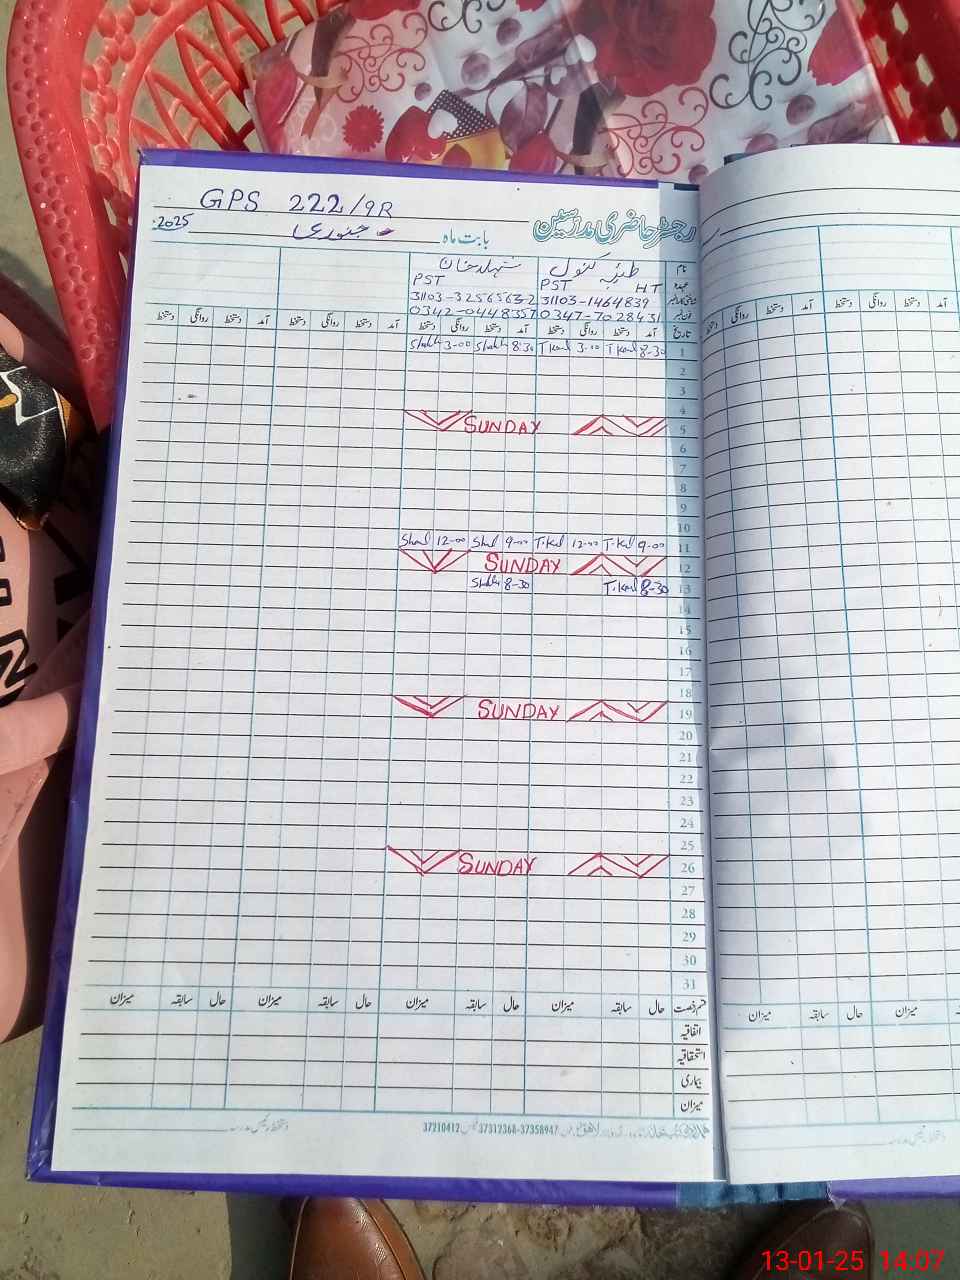 GPS 222/9R رجسٹر حاضری مدرسین
2025 جنوری بابت ماہ
نام طیبہ کنول
PST PST HT عہدہ
31103-3256563-2 31103-1464839
0342-0448357 0347-7028431
تاریخ آمد دستخط روانگی دستخط آمد دستخط روانگی دستخط آمد دستخط روانگی دستخط آمد دستخط روانگی دستخط
3-00 8-30 T.Kanl 3-00 T.Kanl 8-30 1
2
3
4
SUNDAY 5
6
7
8
9
10
12-00 9-00 T.Kanl 12-00 T.Kanl 9-00 11
SUNDAY 12
8-30 T.Kanl 8-30 13
14
15
16
17
18
SUNDAY 19
20
21
22
23
24
25
SUNDAY 26
27
28
29
30
31
قسم رخصت حال سابقہ میزان حال سابقہ میزان حال سابقہ میزان حال سابقہ میزان
اتفاقیہ
استحقاقیہ
بیماری
میزان
37210412 37312368-37358947
دستخط رئیس مدرسہ
دستخط روانگی دستخط آمد دستخط روانگی دستخط آمد
میزان حال سابقہ میزان
دستخط رئیس مدرسہ
13-01-25 14:07